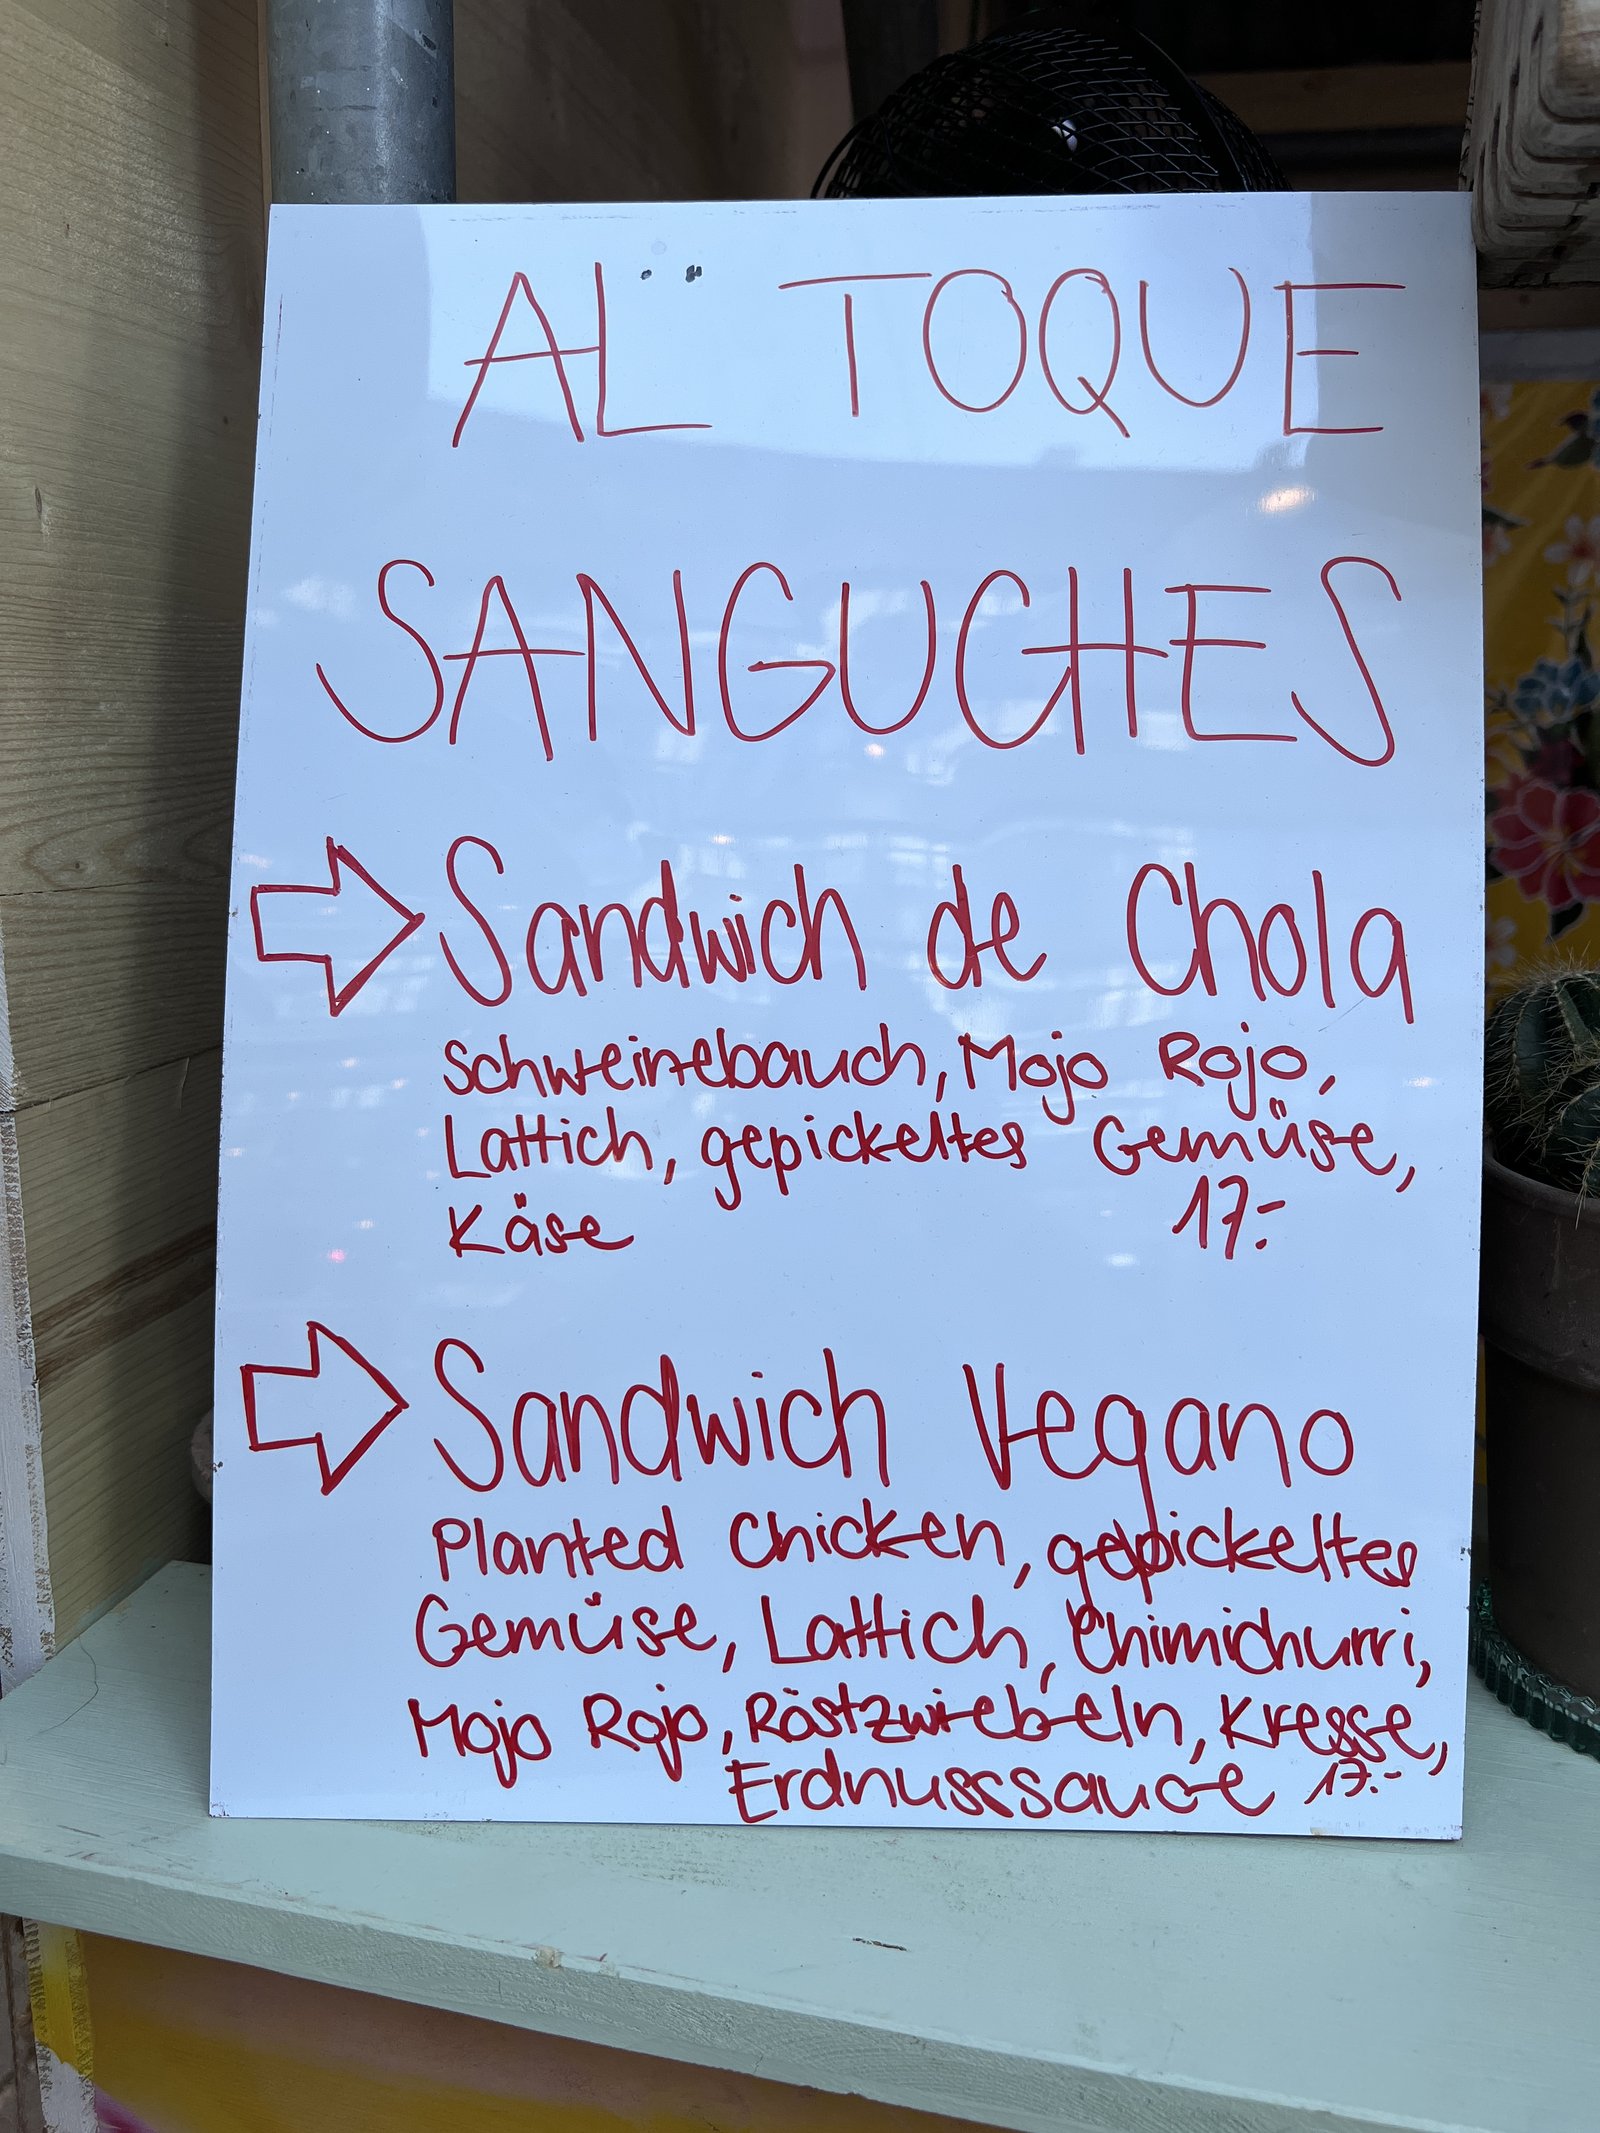 AL TOQUE
SANGUCHES
Sandwich de Chola
Schweinebauch, Mojo Rojo,
Lattich, gepickeltes Gemüse,
Käse 17.-
Sandwich Vegano
Planted Chicken, gepickeltes
Gemüse, Lattich, Chimichurri,
Mojo Rojo, Röstzwiebeln, Kresse,
Erdnusssauce 17.-